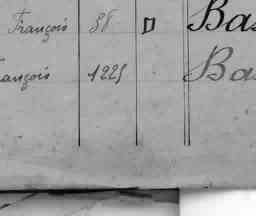 François 58 Bas
ançois 1225 Bas